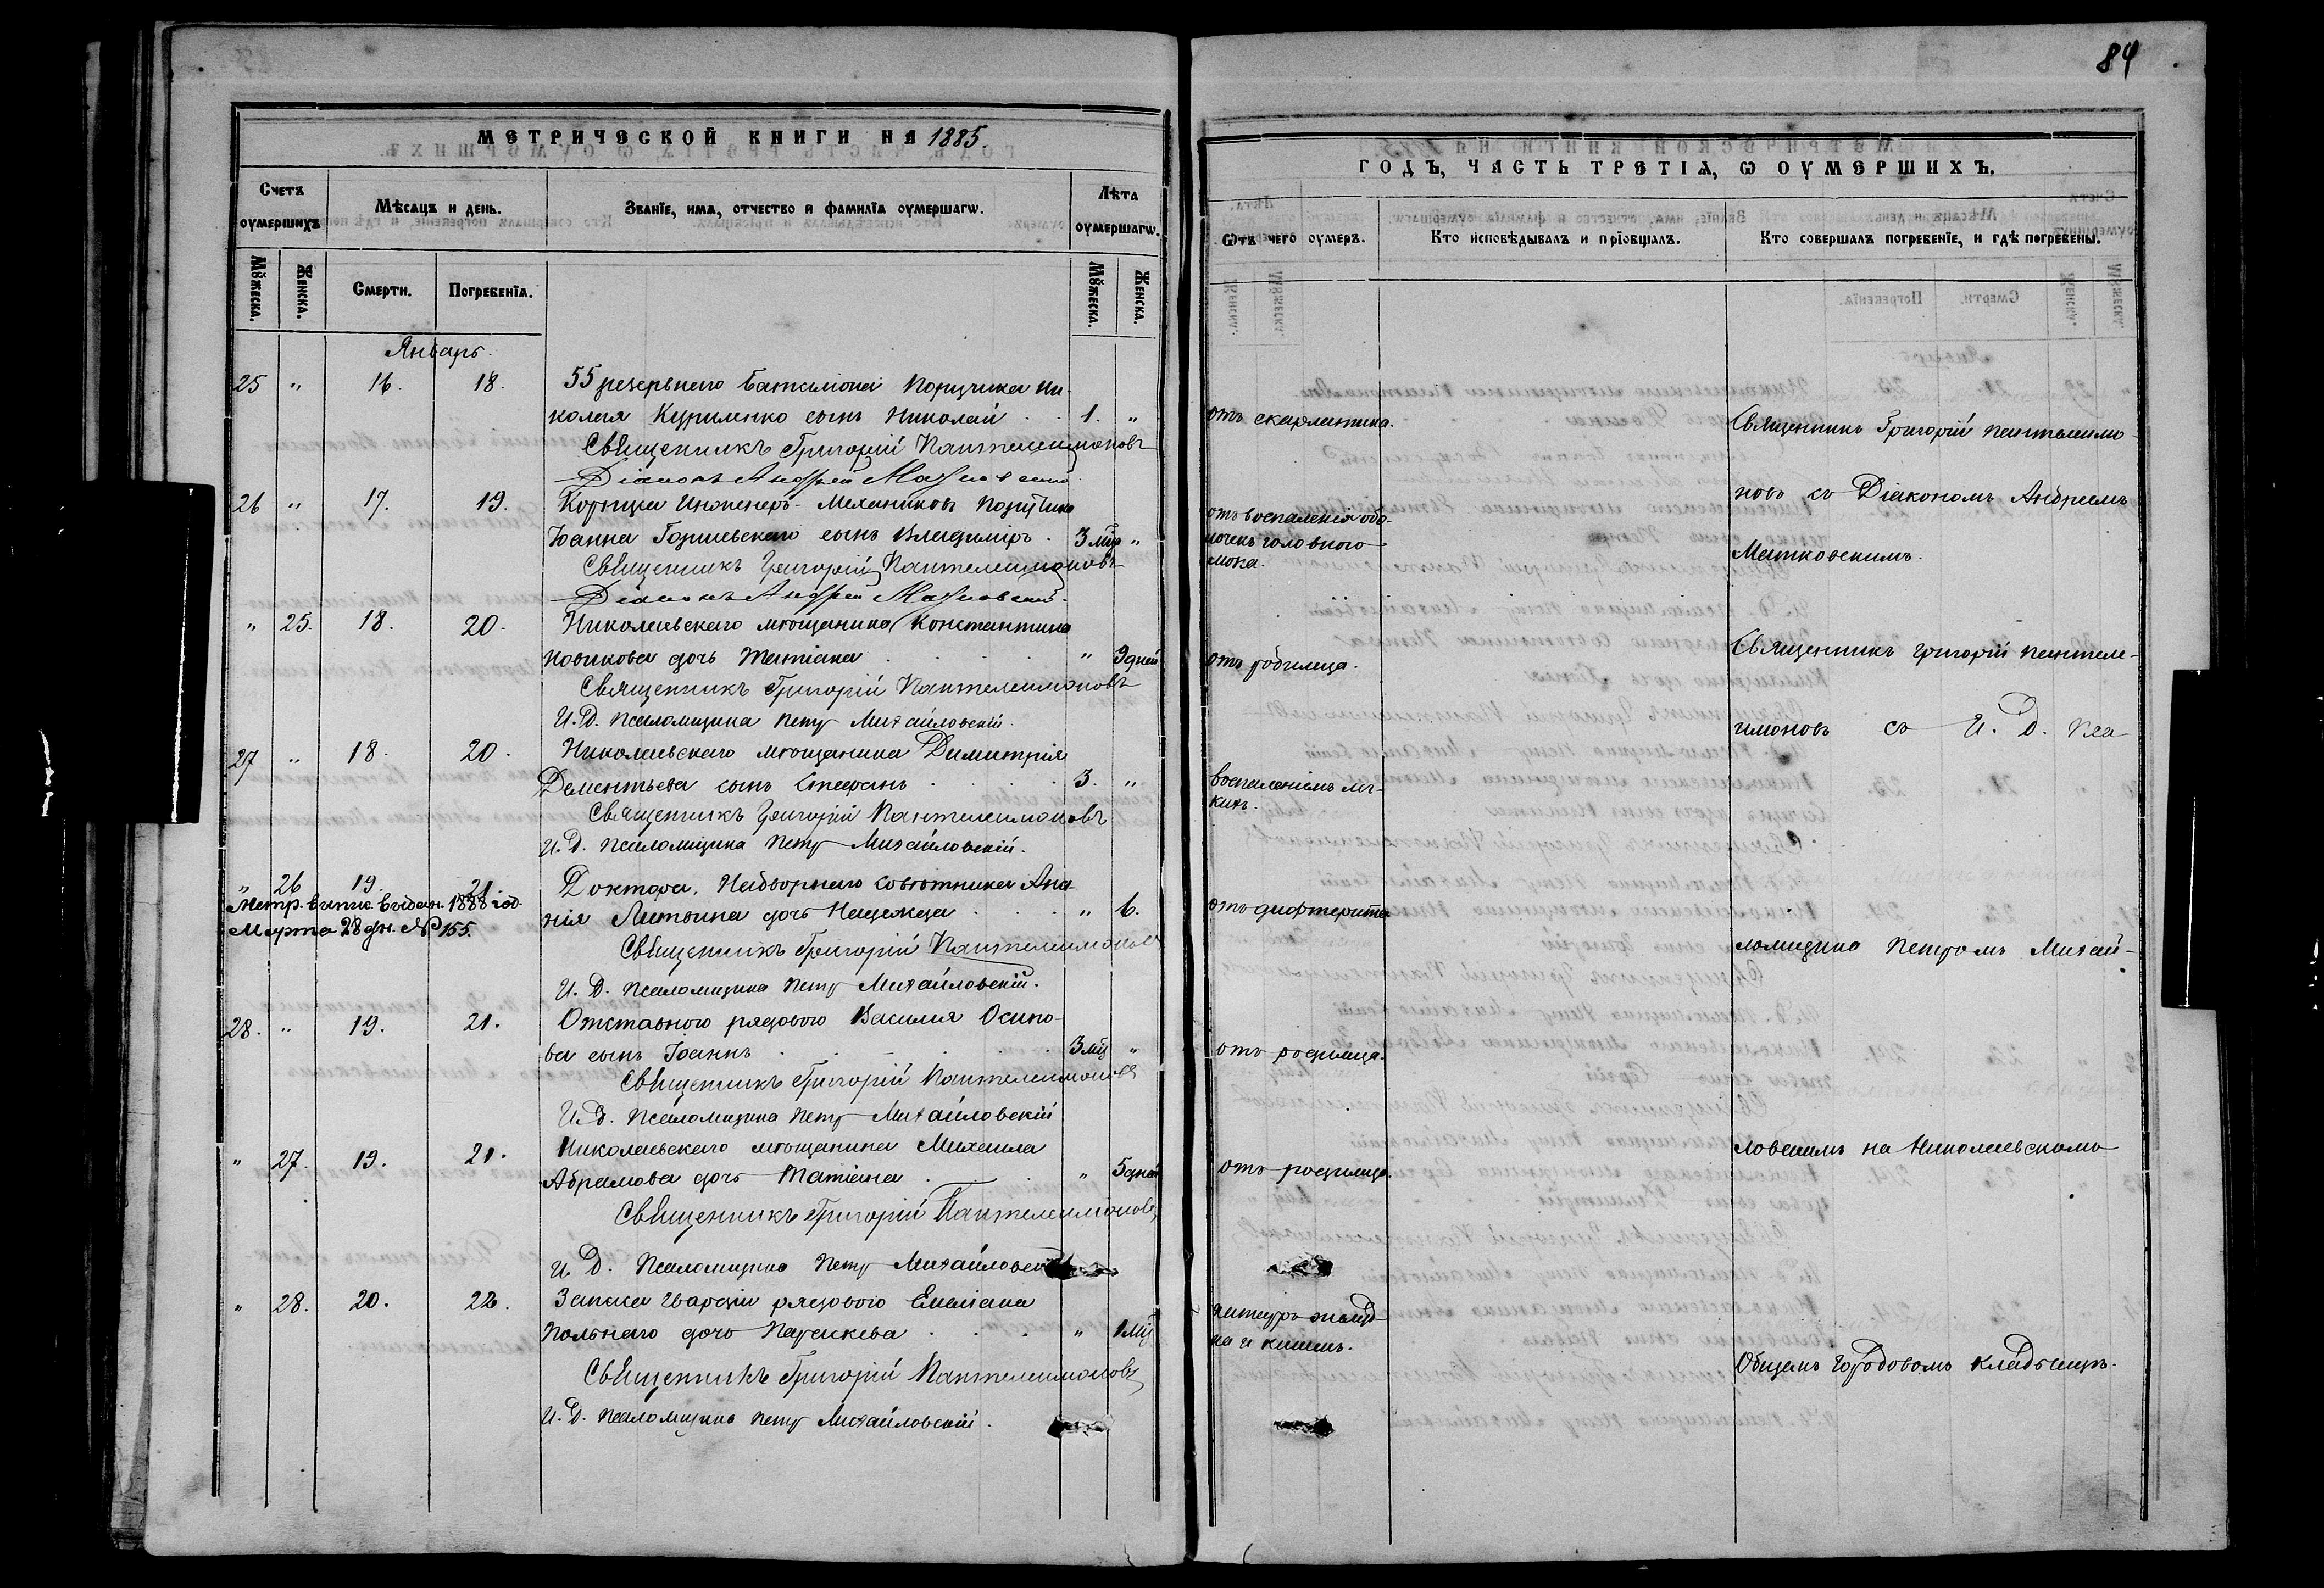 84
МЕТРИЧЕСКОЙ КНИГИ НА 1885.
Счетъ оумершихъ
Мѣсяцъ и день.
Званїе, имя, отчество и фамилїя оумершагѡ.
Лѣта оумершагѡ.
Мꙋжеска.
Женска.
Смерти.
Погребенїя.
Мꙋжеска.
Женска.
Январь.
25 " 16. 18. 55 резервнаго баталіона Поручика Ни-
колая Куриленко сынъ Николай . . 1. "
Священникъ Григорій Пантелеимоновъ
Діаконъ Андрей
26 " 17. 19. Корпуса Инженеръ-Механиковъ Поручика
Іоанна сынъ Владиміръ . 3 мц "
Священникъ Григорій Пантелеимоновъ
Діаконъ Андрей
" 25. 18. 20. Николаевскаго мѣщанина Константина
Новикова дочь Татіана . . . . " 9 дней
Священникъ Григорій Пантелеимоновъ
И. Д. Псаломщика Петръ Михайловскій.
27 " 18. 20. Николаевскаго мѣщанина Димитрія
Дементьева сынъ Стефанъ . . . 3. "
Священникъ Григорій Пантелеимоновъ
И. Д. Псаломщика Петръ Михайловскій.
" 26 19. 21. Доктора, Надворнаго Совѣтника Ана-
Метр. выпис. выдан. 1888 год.
нія Литкина дочь Надежда . . . " 6.
Марта 28 дн. № 155.
Священникъ Григорій Пантелеимоновъ
И. Д. Псаломщика Петръ Михайловскій.
28. " 19. 21. Отставного рядового Василія Осипо-
ва сынъ Іоаннъ . . . . . 3 мц "
Священникъ Григорій Пантелеимоновъ
И. Д. Псаломщика Петръ Михайловскій
" 27. 19. 21. Николаевскаго мѣщанина Михаила
Абрамова дочь Татіана . . . " 5 дней
Священникъ Григорій Пантелеимоновъ
И. Д. Псаломщика Петръ
" 28. 20. 22. Запаса Гвардіи рядового Емеліана
Польнаго дочь Параскева . . . " 1 мц
Священникъ Григорій Пантелеимоновъ
И. Д. Псаломщика Петръ Михайловскій.
ГОДЪ, ЧАСТЬ ТРЕТІЯ, Ѡ ОУМЕРШИХЪ.
Ѿтъ чего оумеръ.
Кто исповѣдывалъ и прїобщалъ.
Кто совершалъ погребенїе, и гдѣ погребены.
отъ скарлатина.
Священникъ Григорій Пантелеимо-
новъ съ Діакономъ Андреемъ
отъ воспаленія обо-
лочекъ головного
мозга.
отъ родимца.
Священникъ Григорій Пантеле-
имоновъ съ И. Д. Пса-
воспаленіемъ лег-
кихъ.
отъ дифтерита
ломщика Петромъ Михай-
отъ родимца.
ловскимъ на Николаевскомъ
отъ родимца.
катарръ желуд-
ка и кишекъ.
Общемъ Городовомъ кладбищѣ.